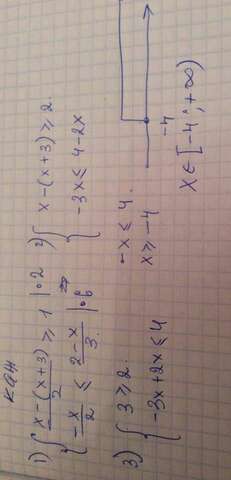 кан
1) { x-(x+3)/2 ≥ 1 |·2
-x/2 ≤ 2-x/3 |·6 ⇒
2) { x-(x+3) ≥ 2.
-3x ≤ 4-2x
3) { 3 ≥ 2.
-3x+2x ≤ 4
-x ≤ 4.
x ≥ -4
-4
x ∈ [-4; +∞)